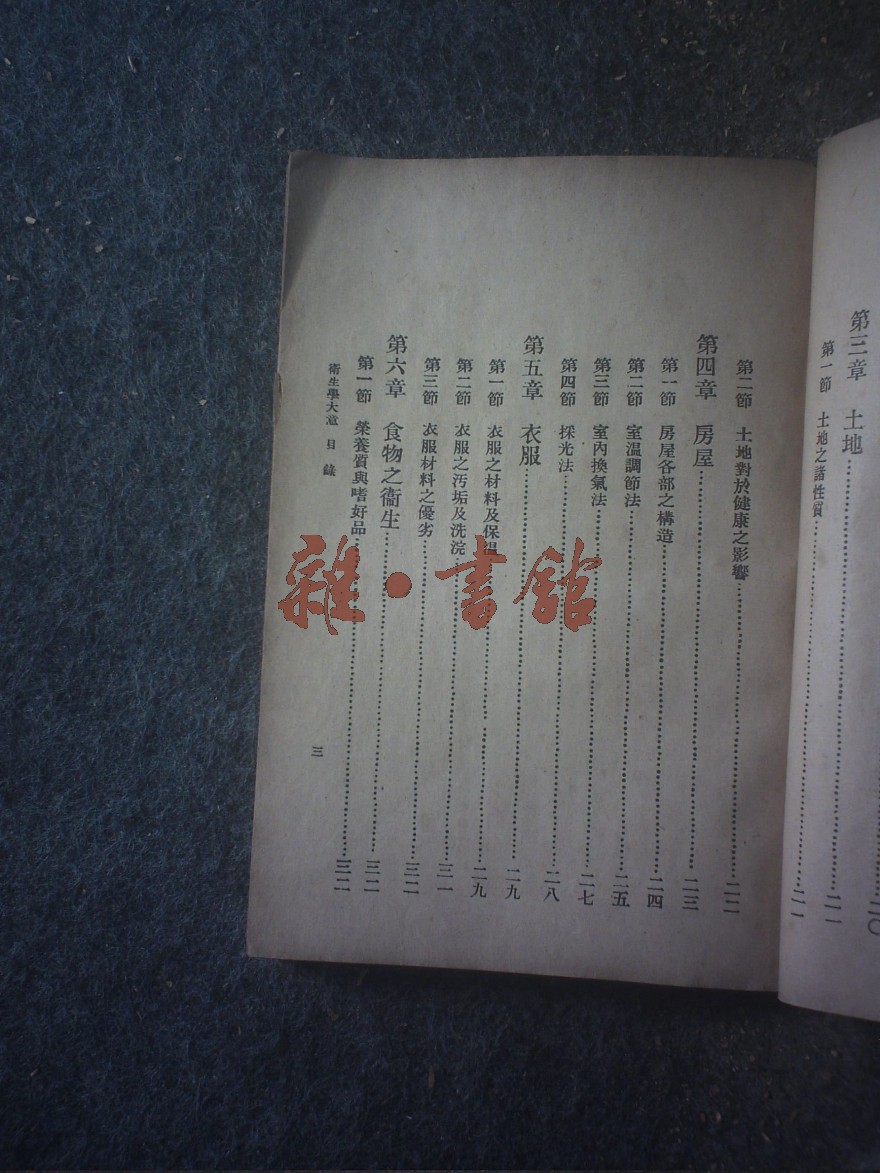 二〇
第三章 土地……二一
第一節 土地之諸性質……二一
第二節 土地對於健康之影響……二二
第四章 房屋……二三
第一節 房屋各部之構造……二四
第二節 室溫調節法……二五
第三節 室內換氣法……二七
第四節 採光法……二八
第五章 衣服……二九
第一節 衣服之材料及保溫……二九
第二節 衣服之汚垢及洗浣……三一
第三節 衣服材料之優劣……三二
第六章 食物之衞生……三二
第一節 榮養質與嗜好品……三二
衞生學大意 目錄 三
雜·書館